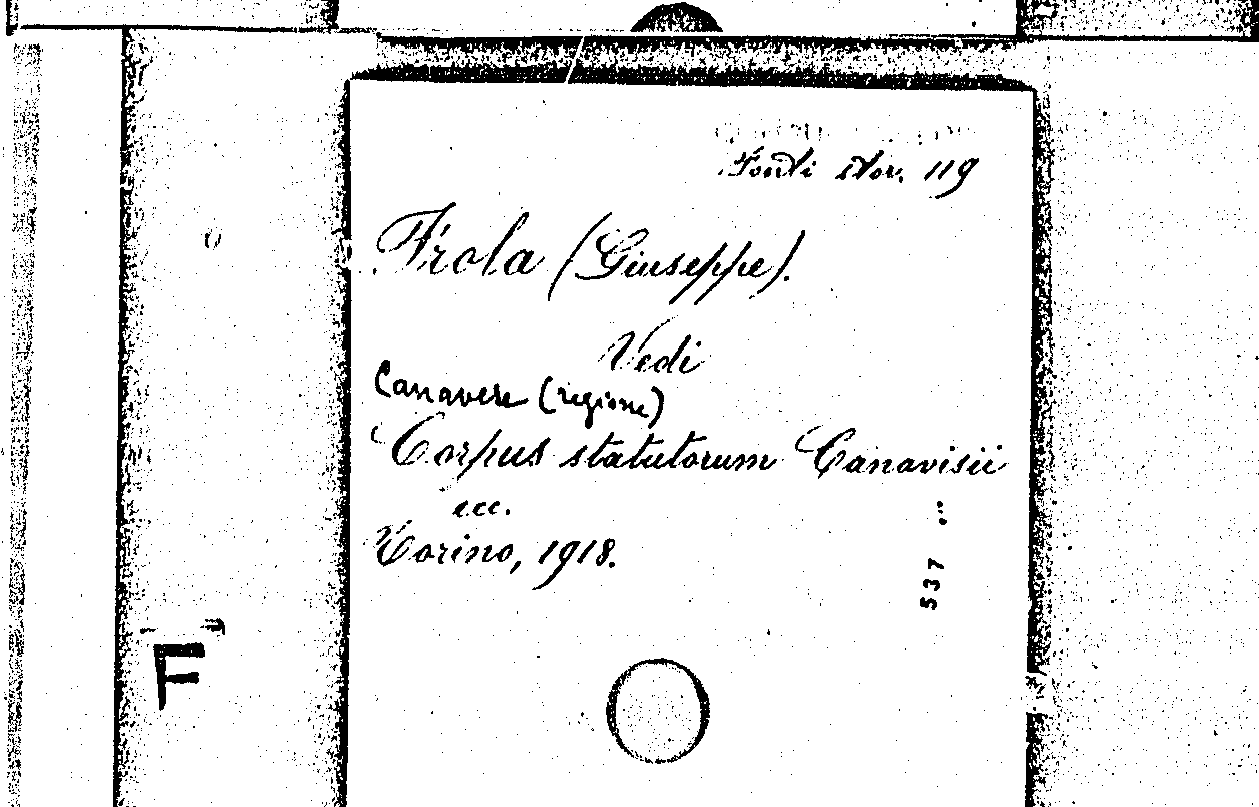 Fonti stor. 119
Frola (Giuseppe).
Vedi
Canavese (regione)
Corpus statutorum Canavisii
ecc.
Torino, 1918.
537
F